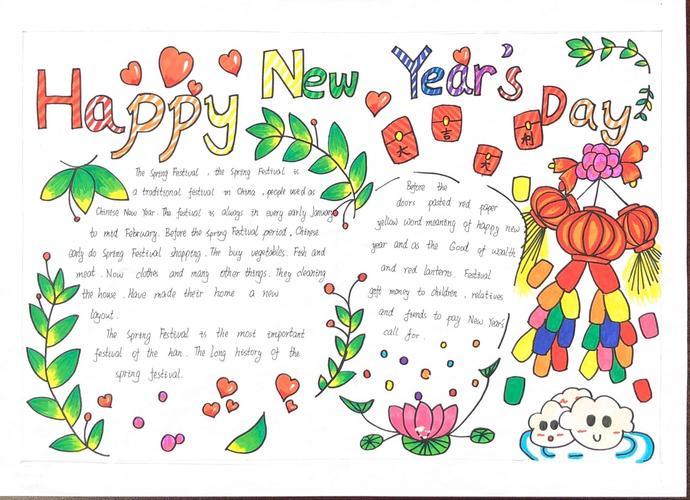 Happy New Year's Day
大 吉 大 利
The Spring Festival , the Spring Festival is
a traditional festival in China . people used as
Chinese New Year. The festival is always in every early January
to mid February. Before the Spring Festival period , Chinese
early do Spring Festival shopping. The buy vegetables. Fish and
meat . Now clothes and many other things. They cleaning
the house . Have made their home a new
layout.
The Spring Festival is the most important
festival of the han . The long history of the
spring festival.
Before the
doors pasted red paper
yellow word meaning of happy new
year and as the God of wealth
and red lanterns. Festival
gift money to children . relatives
and funds to pay New Year's
call for .